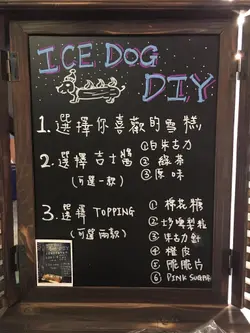 ICE DOG
DIY
1. 選擇你喜歡的雪糕
2. 選擇吉士醬
(可選一款)
①白朱古力
② 綠茶
③ 原味
3. 選擇 TOPPING
(可選兩款)
① 棉花糖
② 炒啡梨粒
③ 朱古力針
④ 橙皮
⑤ 脆脆片
⑥ PINK SUGAR